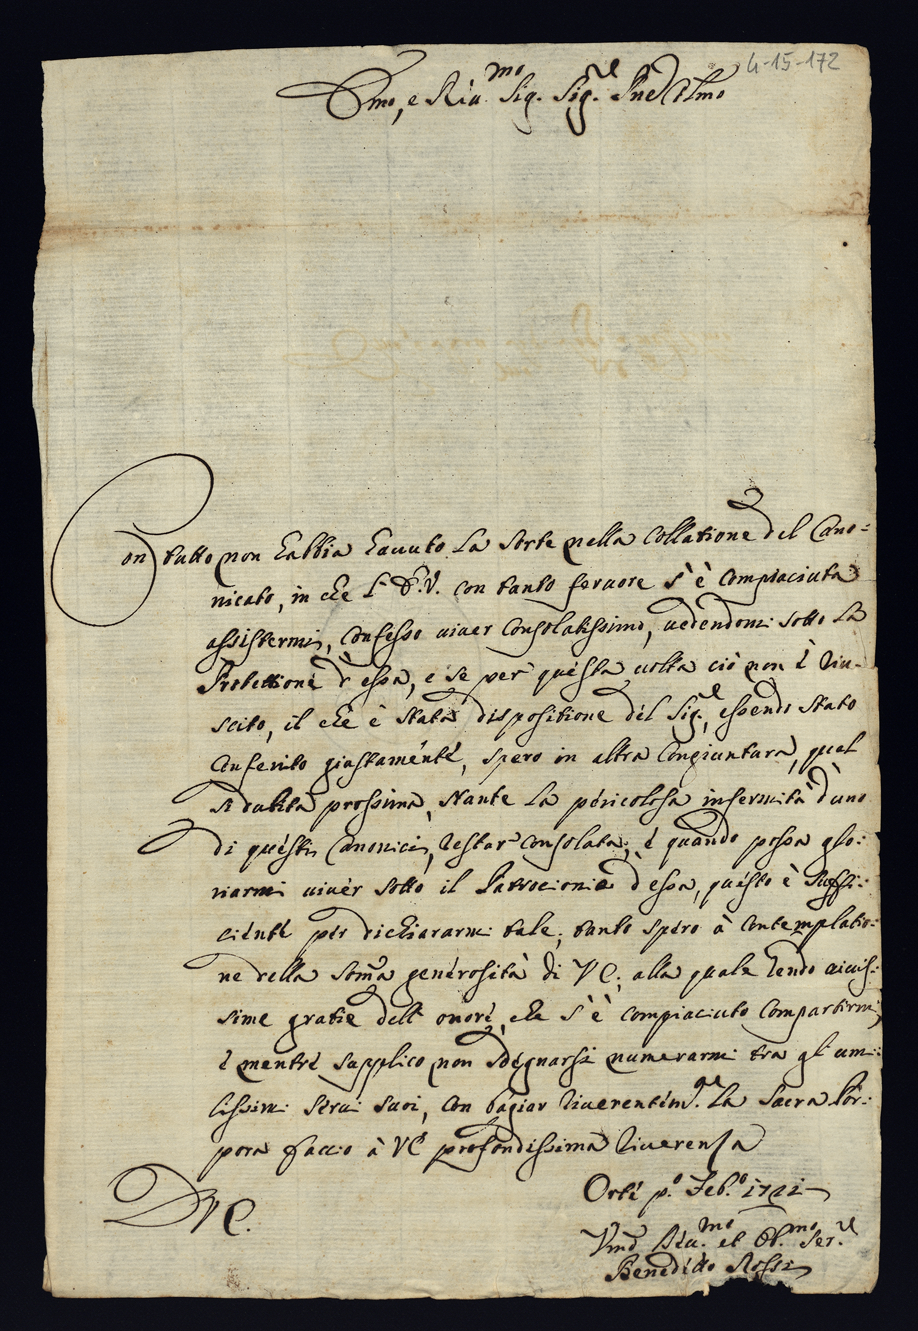 4-15-172
Emo, e Reu.mo Sig. Sig.re Pne Colmo
Con tutto non habbia hauuto la sorte nella Collatione del Cano=
nicato, in che l'E.V. con tanto feruore s'è compiaciuta
assistermi, Confesso uiuer consolatissimo, uedendomi sotto la
Protettione d'essa, e se per questa uolta ciò non è riu=
scito, il che è stata dispositione del Sig.re, essendo stato
conferito giustamente, spero in altra congiuntura, qual
si dubita prossima, stante la pericolosa infermità d'uno
di questi Canonici, restar consolata; e quando possa glo=
riarmi uiuer sotto il Patrocinio d'essa, questo è suffi=
ciente per dichiararmi tale; tanto spero à contemplatio=
ne della soma generosità di VE. alla quale rendo uiuis=
sime gratie dell'onore, che s'è compiaciuto compartirmi,
e mentre supplico non sdegnarsi numerarmi tra gl'umi=
lissimi serui suoi, con bagiar riuerentem.te la sacra Por=
pora faccio à VE profondissima riuerenza
Orte p.o Feb.o 1721
D VE.
Vmo Deu.mo et Ob.mo Ser.re
Benedetto Rossi